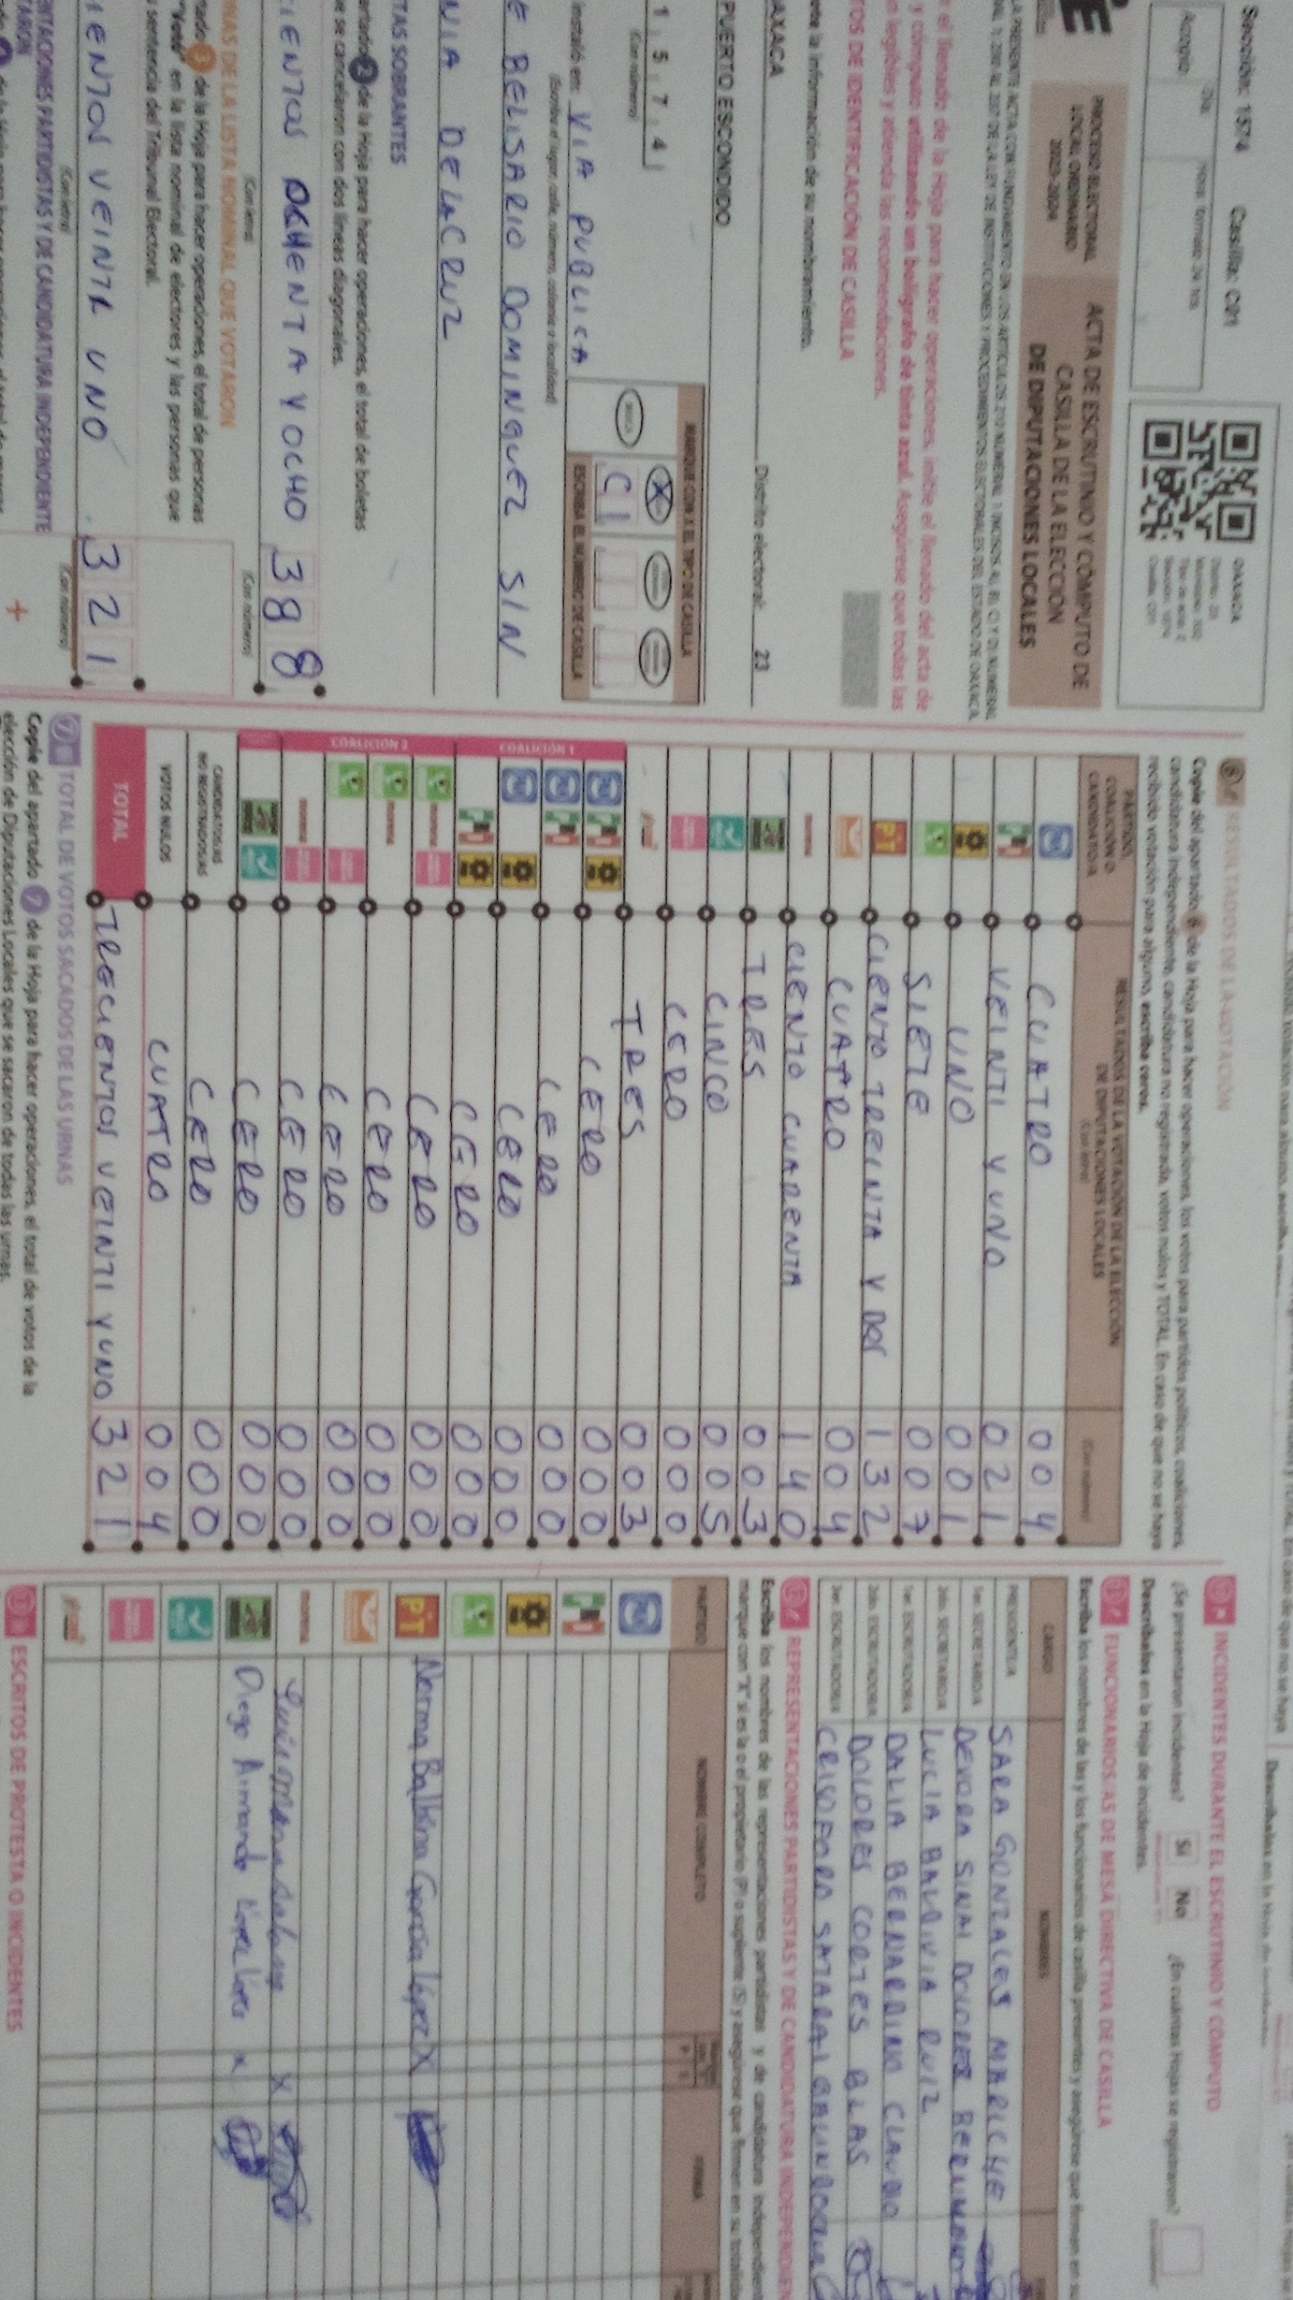 Sección: 1574 Casilla: C01
Acopio
Día:
Hora: formato 24 hrs
OAXACA
PROCESO ELECTORAL
LOCAL ORDINARIO
2023-2024
ACTA DE ESCRUTINIO Y CÓMPUTO DE
CASILLA DE LA ELECCIÓN
DE DIPUTACIONES LOCALES
r el llenado de la Hoja para hacer operaciones, inicie el llenado del acta de
y cómputo utilizando un bolígrafo de tinta azul. Asegúrese que todas las
n legibles y atienda las recomendaciones.
TOS DE IDENTIFICACIÓN DE CASILLA
ete la información de su nombramiento.
AXACA Distrito electoral: 23
PUERTO ESCONDIDO
1 5 7 4
(Con número)
MARQUE CON X EL TIPO DE CASILLA
X
C 1
ESCRIBA EL NÚMERO DE CASILLA
instaló en: VIA PUBLICA
(Escriba el lugar, calle, número, colonia o localidad)
E BELISARIO DOMINGUEZ SIN
NIA DE LA CRUZ
TAS SOBRANTES
artado 2 de la Hoja para hacer operaciones, el total de boletas
e se cancelaron con dos líneas diagonales.
CIENTOS OCHENTA Y OCHO 388
(Con letra) (Con número)
NAS DE LA LISTA NOMINAL QUE VOTARON
rtado 3 de la Hoja para hacer operaciones, el total de personas
"Votó" en la lista nominal de electores y las personas que
s sentencia del Tribunal Electoral.
IENTOS VEINTE UNO 321
(Con letra) (Con número)
ENTACIONES PARTIDISTAS Y DE CANDIDATURA INDEPENDIENTE
TARON
+
6 RESULTADOS DE LA VOTACIÓN
Copie del apartado 6 de la Hoja para hacer operaciones, los votos para partidos políticos, coaliciones,
candidatura independiente, candidatura no registrada, votos nulos y TOTAL. En caso de que no se haya
recibido votación para alguno, escriba ceros.
PARTIDO,
COALICIÓN O
CANDIDATO/A
RESULTADOS DE LA VOTACIÓN DE LA ELECCIÓN
DE DIPUTACIONES LOCALES
(Con letra)
(Con número)
CUATRO 004
VEINTI Y UNO 021
UNO 001
SIETE 007
PT CIENTO TREINTA Y DOS 132
CUATRO 004
morena CIENTO CUARENTA 140
TRES 003
CINCO 005
CERO 000
TRES 003
COALICIÓN 1
CERO 000
CERO 000
CERO 000
CERO 000
COALICIÓN 2
morena CERO 000
morena CERO 000
CERO 000
morena CERO 000
CERO 000
CANDIDATOS/AS
NO REGISTRADOS/AS CERO 000
VOTOS NULOS CUATRO 004
TOTAL TRECIENTOS VEINTI Y UNO 321
7 TOTAL DE VOTOS SACADOS DE LAS URNAS
Copie del apartado 7 de la Hoja para hacer operaciones, el total de votos de la
elección de Diputaciones Locales que se sacaron de todas las urnas.
INCIDENTES DURANTE EL ESCRUTINIO Y CÓMPUTO
¿Se presentaron incidentes? Sí No ¿En cuántas Hojas se registraron?
Descríbalos en la Hoja de incidentes.
FUNCIONARIOS/AS DE MESA DIRECTIVA DE CASILLA
Escriba los nombres de las y los funcionarios de casilla presentes y asegúrese que firmen en su
CARGO NOMBRES
PRESIDENTE/A SARA GONZALES MARICHE
1er. SECRETARIO/A DEVORA SINAI DOLORES
2do. SECRETARIO/A LUCIA BALDIVIA RUIZ
1er. ESCRUTADOR/A DALIA BERNARDINO CLAUDIO
2do. ESCRUTADOR/A DOLORES CORTES BLAS
3er. ESCRUTADOR/A
REPRESENTACIONES PARTIDISTAS Y DE CANDIDATURA INDEPENDIEN
Escriba los nombres de las representaciones partidistas y de candidatura independient
marque con "X" si es la o el propietario (P) o suplente (S) y asegúrese que firmen en su
PARTIDO NOMBRE COMPLETO FIRMA
PT Norma Balbina García López X
morena X
Diego Armando x
ESCRITOS DE PROTESTA O INCIDENTES